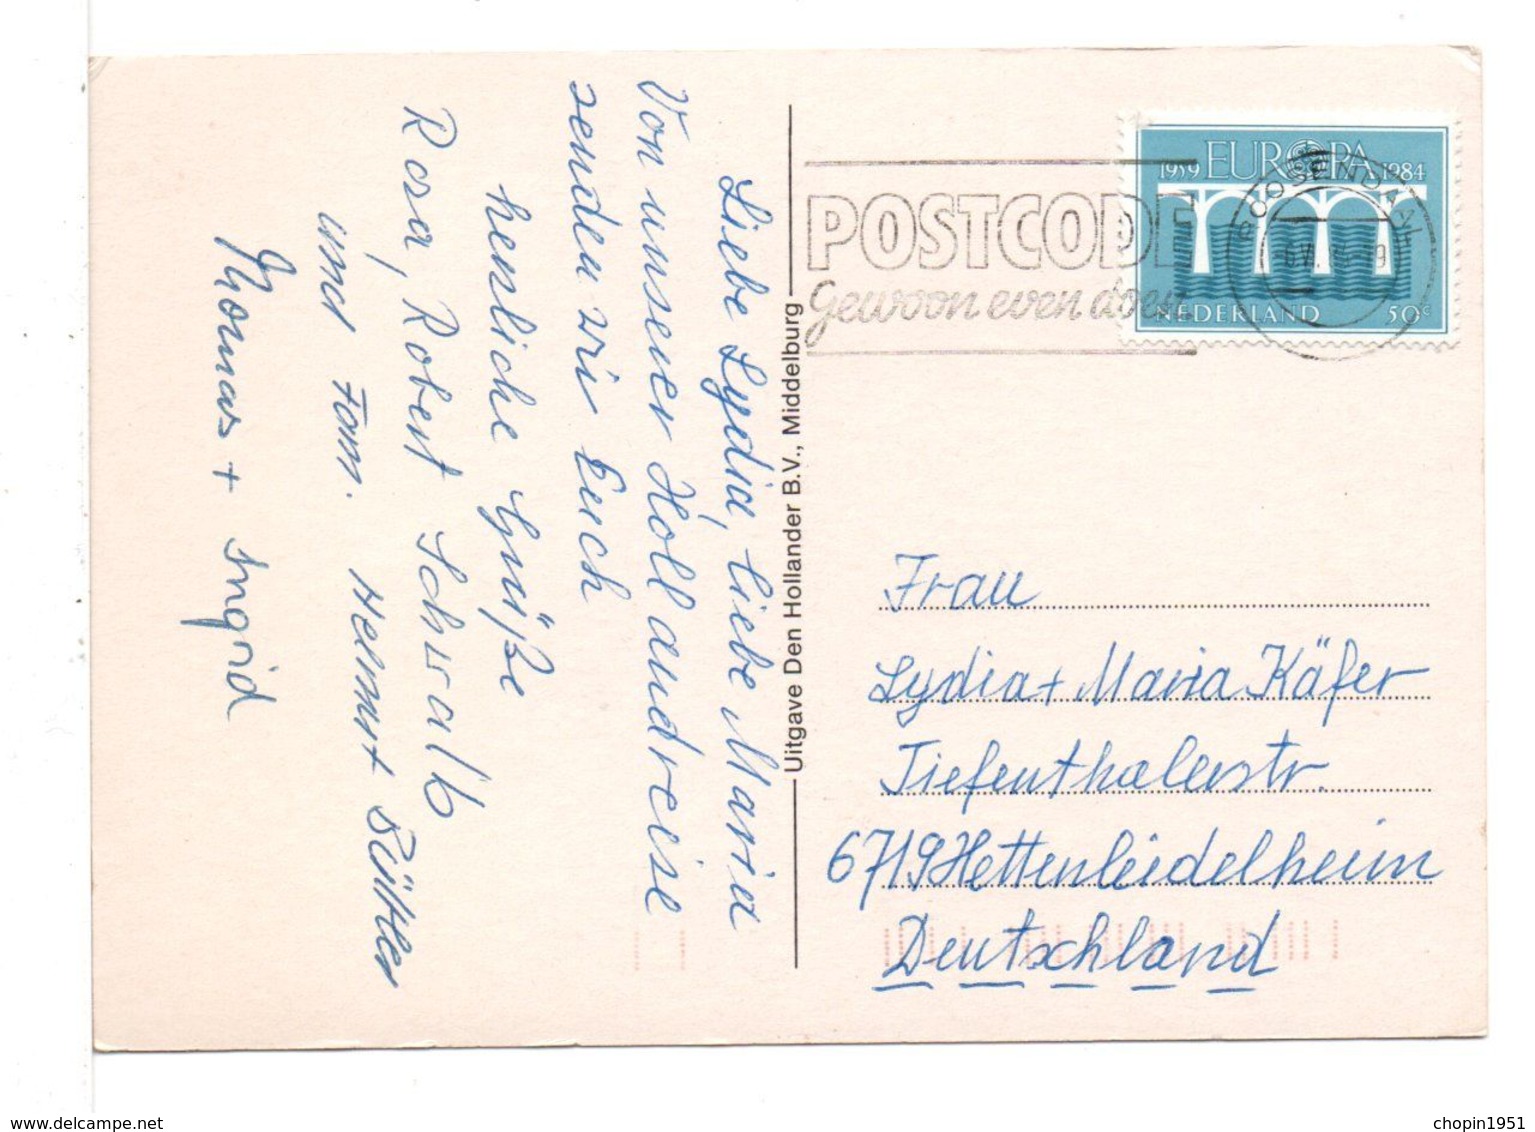 Liebe Lydia, liebe Maria
Von unserer Hollandreise
senden wir Euch
herzliche Grüße
Rosa, Robert Schwalb
und Fam. Helmut Büttler
Thomas + Ingrid
Uitgave Den Hollander B.V., Middelburg
1959 EUROPA 1984
NEDERLAND 50c
POSTCODE
gewoon even doen
ROOSENDAAL
Frau
Lydia + Maria Käfer
Tiefenthalerstr.
6719 Hettenleidelheim
Deutschland
www.delcampe.net
chopin1951